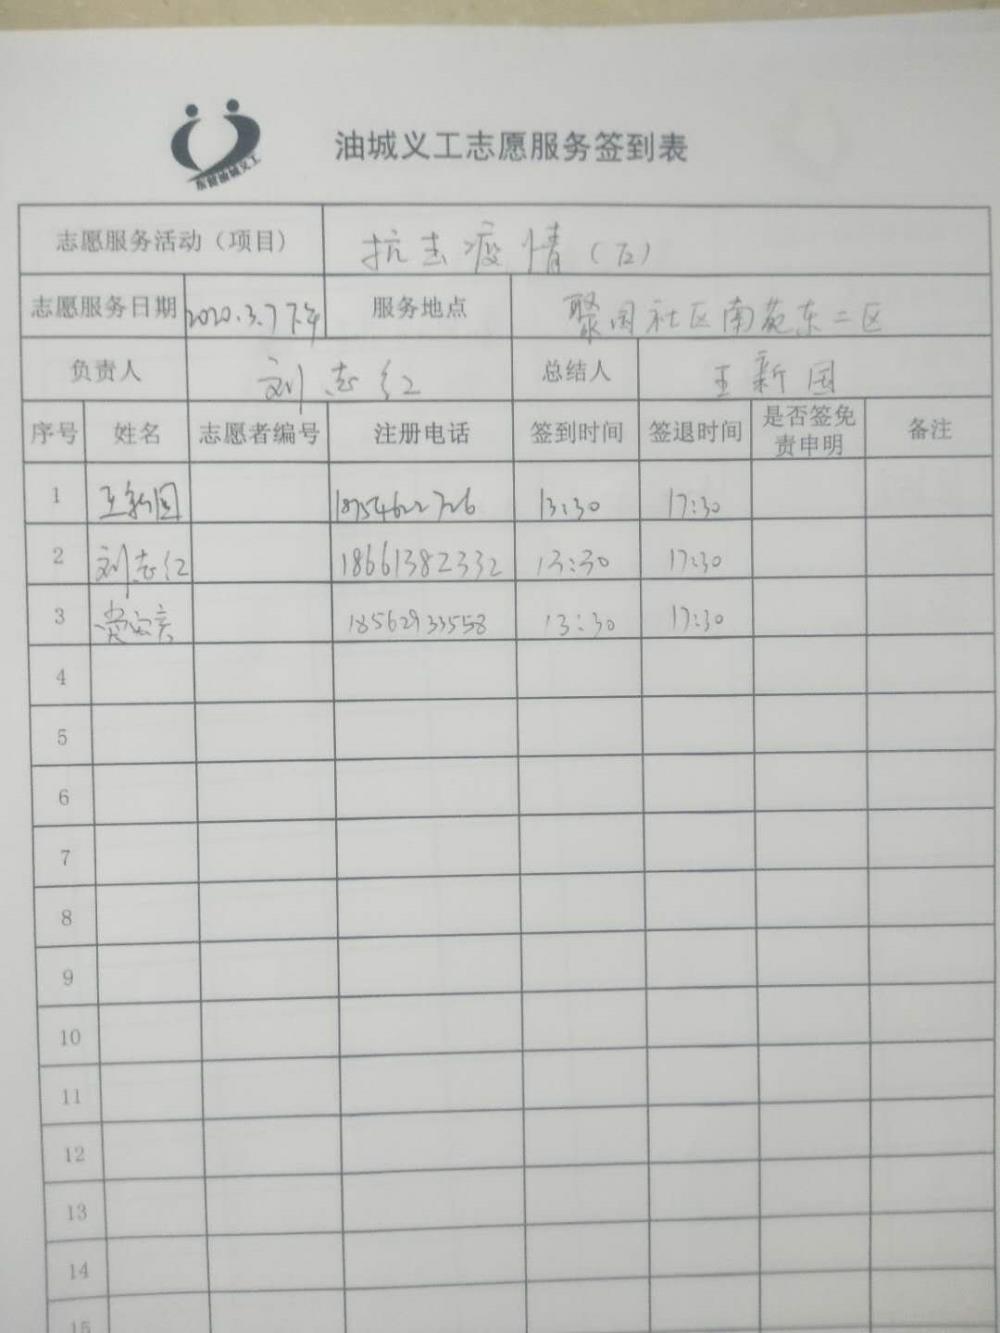 东营油城义工
油城义工志愿服务签到表
志愿服务活动（项目） 抗击疫情（五）
志愿服务日期 2020.3.7下午 服务地点 聚园社区南苑东二区
负责人 刘志红 总结人 王新国
序号 姓名 志愿者编号 注册电话 签到时间 签退时间 是否签免责申明 备注
1 王新国 13:30 17:30
2 刘志红 18661382332 13:30 17:30
3 18562933558 13:30 17:30
4
5
6
7
8
9
10
11
12
13
14
15